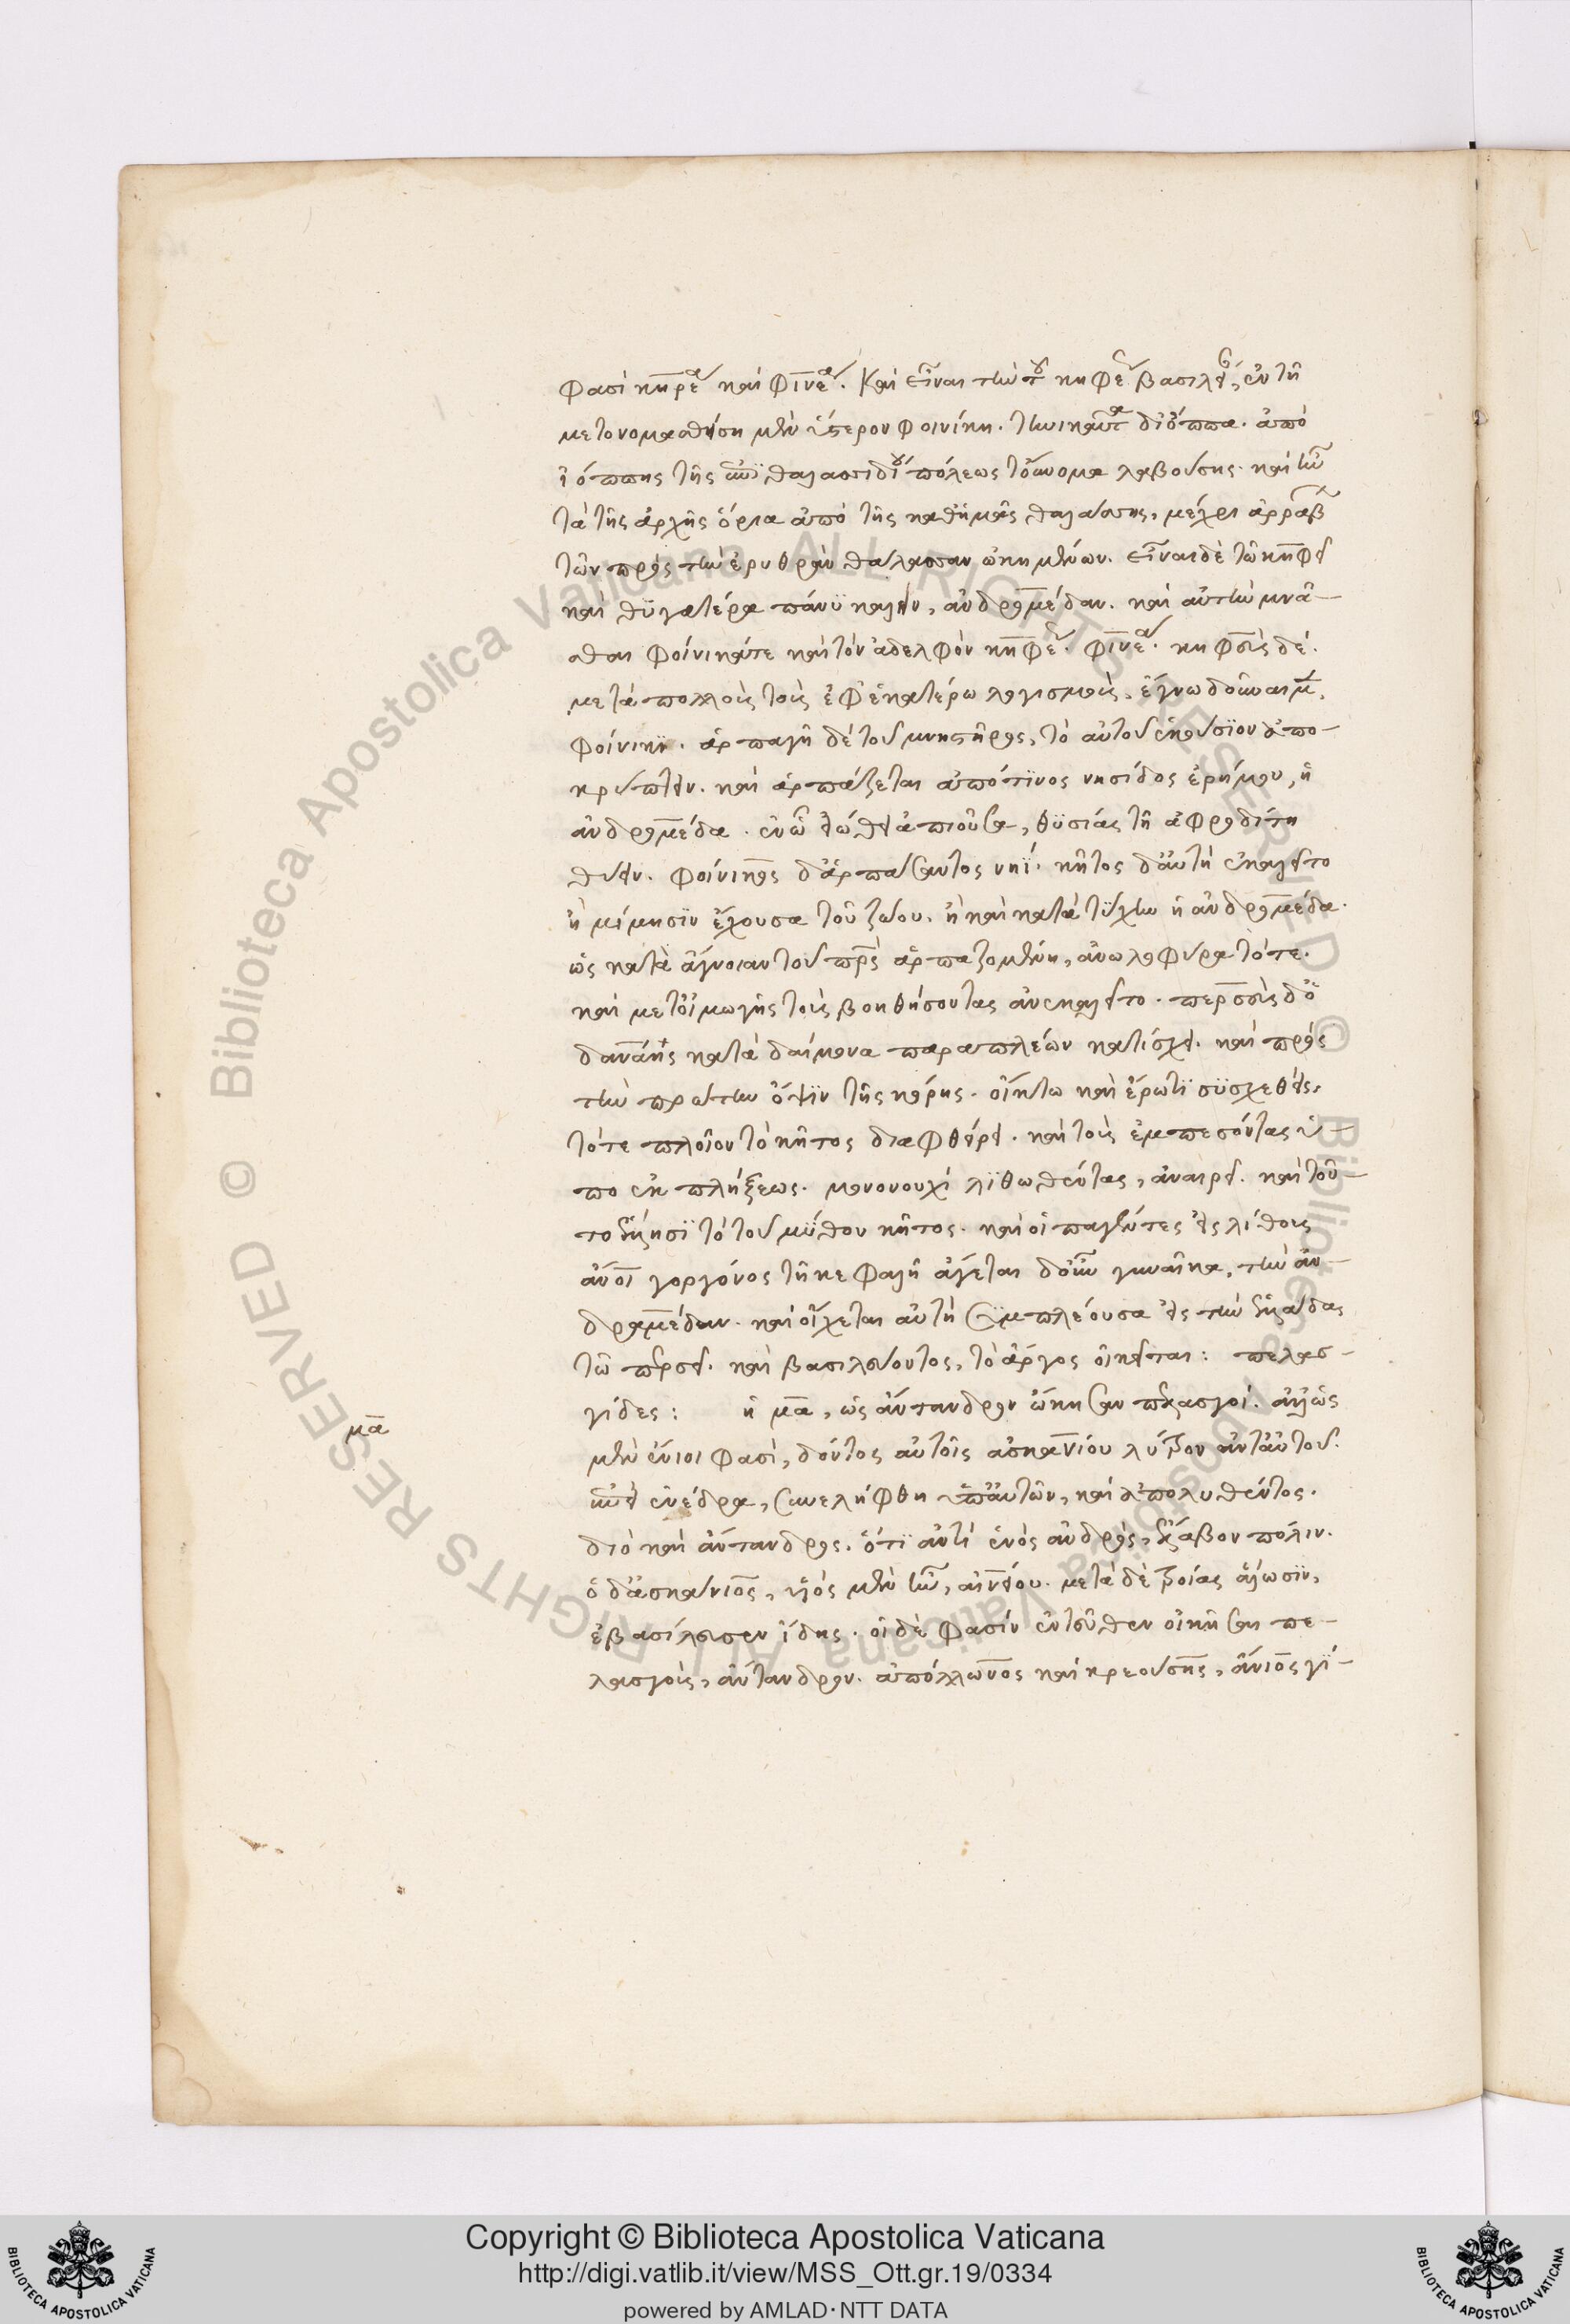 φασὶ κηρέα καὶ φινέα. Καὶ εἶναι τὴν τοῦ κηφέως βασιλείαν, ἐν τῆ
μετονομασθείση μὲν ὕστερον φοινίκη. τηνικαῦτα δ' ἰόππα. ἀπὸ
ἰόππης τῆς ἐπιθαλασσιδίου πόλεως τοὔνομα λαβούσης. καὶ ἦν
τὰ τῆς ἀρχῆς ὅρια ἀπὸ τῆς καθ' ἡμᾶς θαλάσσης, μέχρι ἀρράβων
τῶν πρὸς τὴν ἐρυθρὰν θάλασσαν ὠκημένων. εἶναι δὲ τῶ κηφεῖ
καὶ θϋγατέρα πάνϋ καλὴν, ἀνδρομέδαν. καὶ αὐτὴν μνᾶ-
σθαι φοίνικά τε καὶ τὸν ἀδελφὸν κηφέως φινέα. κηφεὺς δὲ
μετὰ πολλοὺς τοὺς ἐφ' ἑκατέρω λογισμοὺς, ἔγνω δοῦναι μὲν
φοίνικϊ. ἁρπαγῆ δὲ τοῦ μνηστῆρος, τὸ αὐτοῦ ἑκούσϊον ἀπο-
κρύπτειν. καὶ ἁρπάζεται ἀπό τϊνος νησίδος ἐρήμου, ἡ
ἀνδρομέδα. ἐν ὧ εἰώθει ἀπιοῦσα, θϋσίας τῆ ἀφροδίτη
θύειν. φοίνικος δ' ἁρπάσαντος νηῒ. κῆτος δ' αὐτὴ ἐκαλεῖτο
ἢ μίμησϊν ἔχουσα τοῦ ζώου. ἢ καὶ κατὰ τϋχην ἡ ἀνδρομέδα.
ὡς κατὰ ἄγνοιαν τοῦ πατρὸς ἁρπαζομένη, ἀνωλοφύρατό τε.
καὶ μετ' οἰμωγῆς τοὺς βοηθήσοντας ἀνεκαλεῖτο. περσεὺς δ' ὁ
δανάης κατὰ δαίμονα παραπλέων κατίσχει. καὶ πρὸς
τὴν πρώτην ὄψϊν τῆς κόρης. οἴκτω καὶ ἔρωτϊ σϋσχεθεὶς,
τό τε πλοῖον τὸ κῆτος διαφθείρει. καὶ τοὺς ἐμπεσόντας ὑ-
πο ἐκπλήξεως. μονονουχὶ λϊθωθέντας, ἀναιρεῖ. καὶ τοῦ-
το ἕλλησϊ τὸ τοῦ μϋθου κῆτος. καὶ οἱ παγέντες εἰς λίθους
ἄνοι γοργόνος τῆ κεφαλῆ ἄγεται δ' οὖν γυναῖκα, τὴν ἀν-
δρομέδαν. καὶ οἴχεται αὐτὴ σϋμπλέουσα εἰς τὴν ἑλλάδα
τῶ περσεῖ. καὶ βασιλεύοντος, τὸ ἄργος οἰκεῖται: πελασ-
γίδες: ἡ μα, ὡς ἄντανδρον ὤκησαν πελασγοί. ἀλλ' ὡς
μὲν ἔνιοι φασὶ, δόντος αὐτοῖς ἀσκανίου λύτρον ἀνταὐτοῦ.
ἐπεὶ ἐνέδρα, συνελήφθη ὑπ' αὐτῶν, καὶ ἀπολυθέντος.
διὸ καὶ ἄντανδρος. ὅτϊ ἀντὶ ἑνὸς ἀνδρὸς, ἔλαβον πόλιν.
ὁ δ' ἀσκάνιος, υἱὸς μὲν ἦν, αἰνείου. μετὰ δὲ τροίας ἅλωσϊν,
ἐβασίλευσεν ἴδης. οἱ δὲ φασὶν ἐντεῦθεν οἰκῆσαι πε-
λασγοὺς, ἄντανδρον. ἀπόλλωνος καὶ κρεούσης, ἄνιος γί-
μα
Copyright © Biblioteca Apostolica Vaticana
http://digi.vatlib.it/view/MSS_Ott.gr.19/0334
powered by AMLAD·NTT DATA